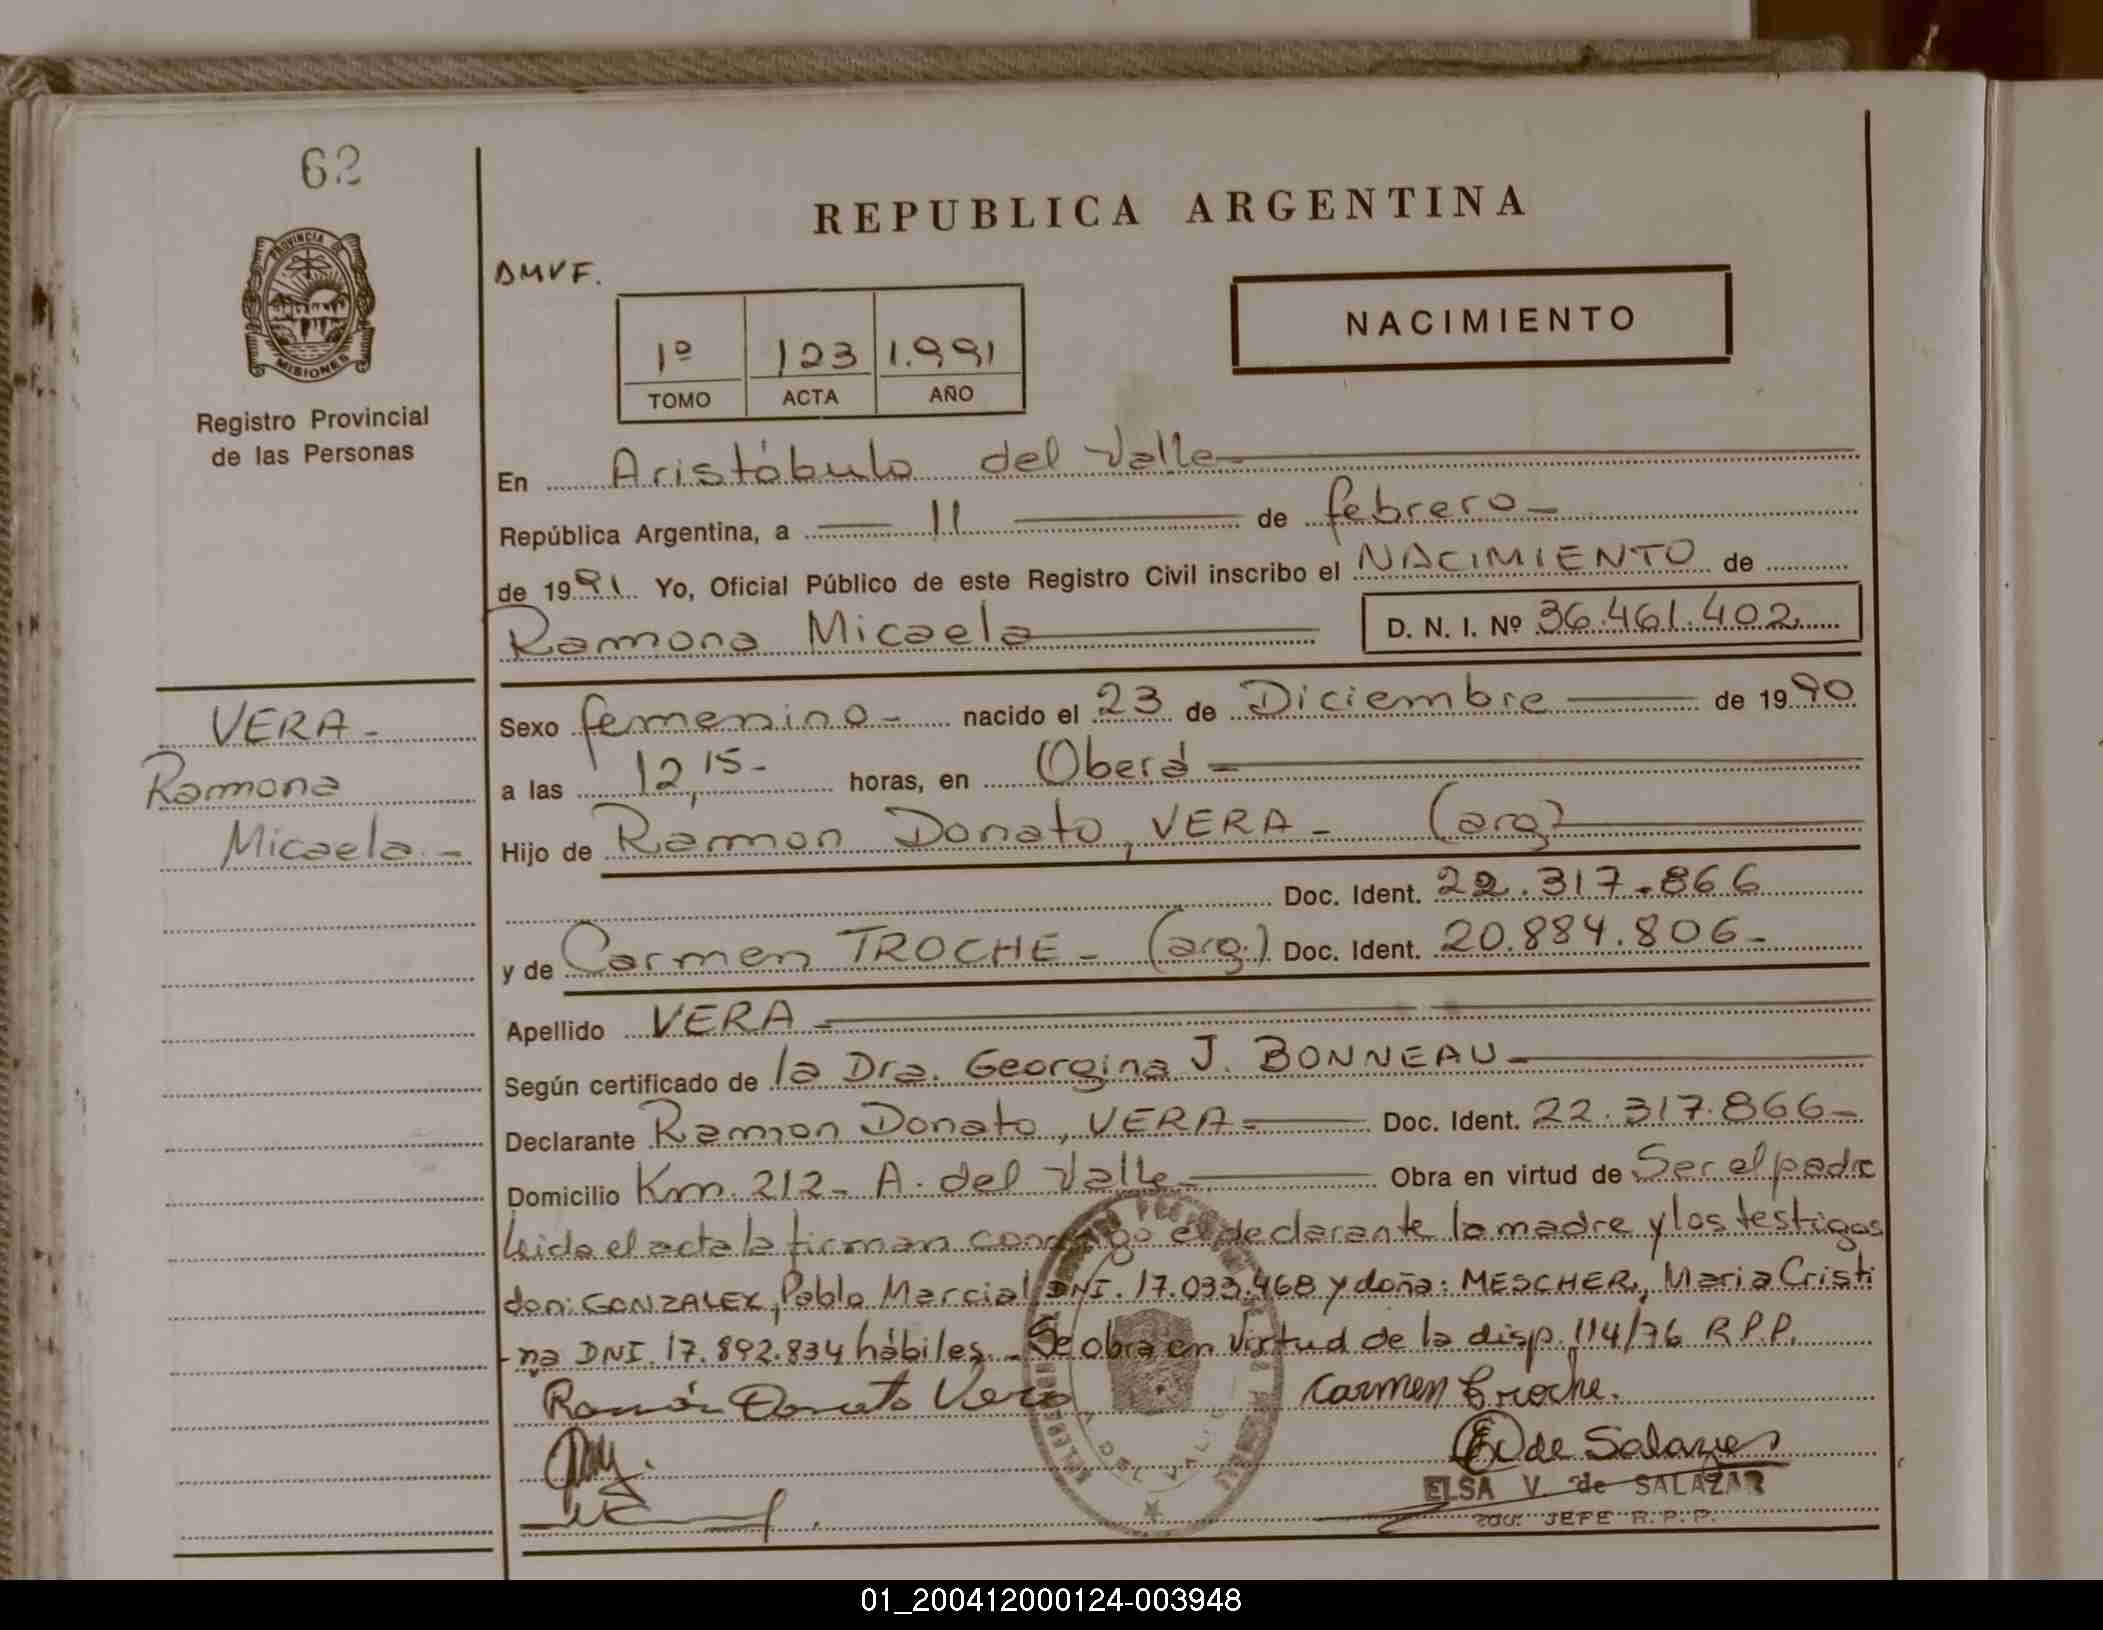 62
PROVINCIA DE
MISIONES
Registro Provincial
de las Personas
REPUBLICA ARGENTINA
DMVF.
NACIMIENTO
1º 123 1.991
TOMO ACTA AÑO
En Aristóbulo del Valle
República Argentina, a 11 de febrero
de 1991 Yo, Oficial Público de este Registro Civil inscribo el NACIMIENTO de
Ramona Micaela D. N. I. Nº 36.461.402
VERA
Ramona
Micaela
Sexo femenino nacido el 23 de Diciembre de 1990
a las 12,15 horas, en Oberá
Hijo de Ramon Donato, VERA (arg)
Doc. Ident. 22.317.866
y de Carmen TROCHE (arg.) Doc. Ident. 20.884.806
Apellido VERA
Según certificado de la Dra. Georgina J. BONNEAU
Declarante Ramon Donato, VERA Doc. Ident. 22.317.866
Domicilio Km. 212 - A. del Valle Obra en virtud de Ser el padre
leida el acta la firman conmigo el declarante la madre y los testigos
don: GONZALEZ, Pablo Marcial DNI. 17.033.468 y doña: MESCHER, Maria Cristi
-na DNI. 17.892.834 hábiles. Se obra en virtud de la disp. 114/76 R.P.P.
Ramón Donato Vera Carmen Troche.
E V de Salazar
ELSA V. de SALAZAR
JEFE R.P.P.
01_200412000124-003948